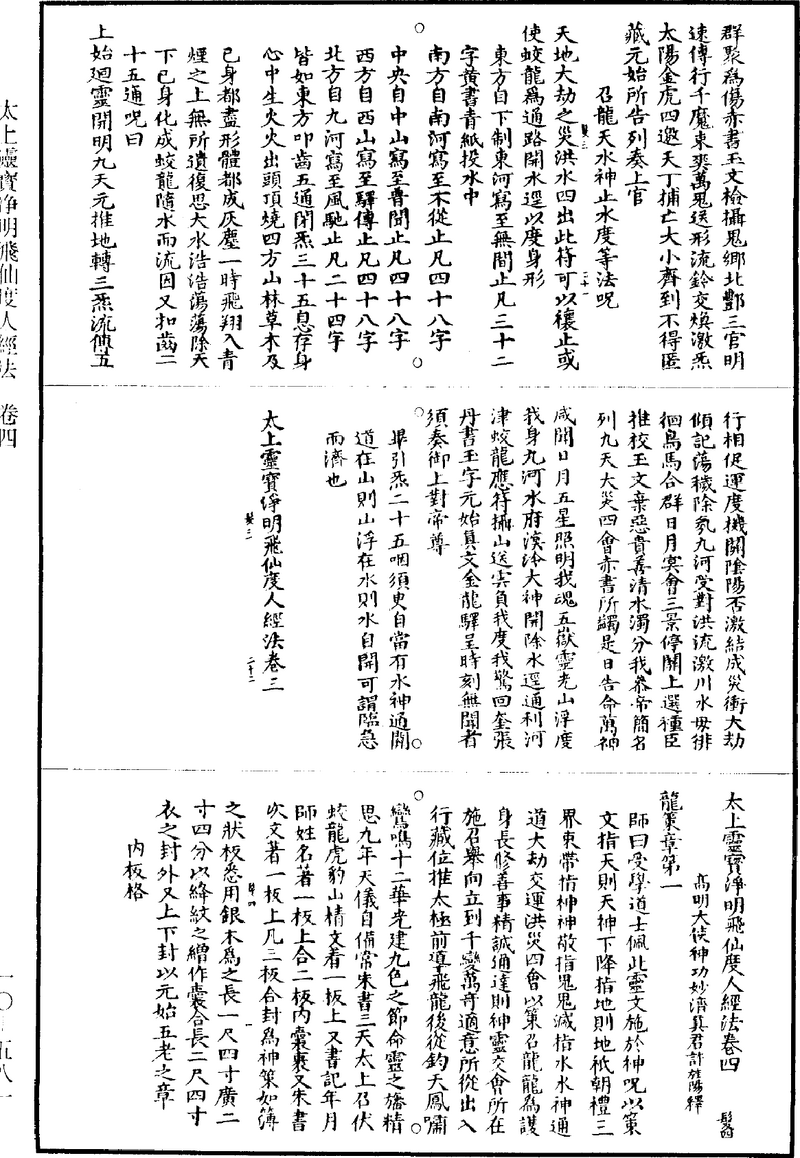 群聚為傷赤書玉文檢攝鬼鄉北酆三官明
速傳行千魔束爽萬鬼送形流鈴交煥激炁
太陽金虎四邀天丁捕亡大小齊到不得匿
藏元始所告列奏上官
召龍天水神止水度等法呪
髮三
二十一
天地大劫之災洪水四出此符可以禳止或
使蛟龍為通路開水逕以度身形
東方自下制東河寫至無間止凡三十二
字黄書青紙投水中
南方自南河寫至不從止凡四十八字
中央自中山寫至普聞止凡四十八字
西方自西山寫至驛傳止凡四十八字
北方自九河寫至風馳止凡二十四字
皆如東方叩齒五通閉炁三十五息存身
心中生火火出頭頂燒四方山林草木及
己身都盡形體都成灰塵一時飛翔入青
煙之上無所遺復思大水浩浩蕩蕩除天
下已身化成蛟龍隨水而流因又扣齒二
十五通呪曰
上始廻靈開明九天元推地轉三炁流傳五
行相促運度機關陰陽否激結成災衝大劫
傾訖蕩穢除氛九河受對洪流激川水毋徘
徊鳥馬合群日月冥會三景停關上選種臣
推校玉文棄惡貴善清水濁分我恭帝簡名
列九天大災四會赤書所蠲是日告命萬神
咸聞日月五星照明我魂五嶽靈光山浮度
我身九河水府溟泠大神開除水逕通利河
津蛟龍應符攝山送尖負我度我驚回奎張
丹書玉字元始真文金龍驛呈時刻無聞者
須奏御上對帝尊
畢引炁二十五咽須臾自當有水神通開
道在山則山浮在水則水自開可謂臨急
而濟也
太上靈寶淨明飛仙度人經法卷三
髮三
二十二
太上靈寶淨明飛仙度人經法卷四
髮四
高明大使神功妙濟真君許旌陽釋
龍策章第一
師曰受學道士佩此靈文施於神呪以策
文指天則天神下降指地則地祇朝禮三
界束帶指神神敬指鬼鬼滅指水水神通
道大劫交運洪災四會以策召龍龍為護
身長修善事精誠通達則神靈交會所在
施召舉向立到千變萬奇適意所從出入
行藏位推太極前導飛龍後從鈞天鳳嘯
鸞鳴十二華光建九色之節命靈之旛精
思九年天儀自備常朱書三天太上召伏
蛟龍虎豹山精文着一板上又書記年月
師姓名著一板上合二板內囊裹又朱書
次文著一板上凡三板合封為神策如簿
之狀板悉用銀木為之長一尺四寸廣二
寸四分以絳紋之繒作囊合長二尺四寸
衣之封外又上下封以元始五老之章
內板格
太上靈寶淨明飛仙度人經法　卷四